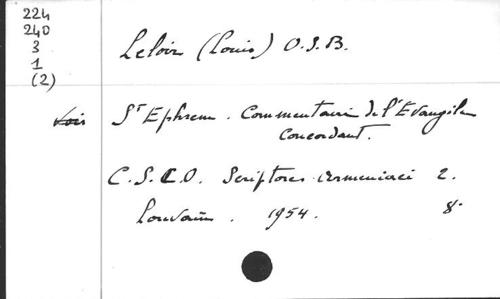 224
240
3
1
(2)
Leloir (Louis) O.S.B.
Voir St Ephrem. Commentaire de l'Evangile
Concordant.
C.S.C.O. Scriptores Armeniaci 2.
Louvain. 1954. 8°